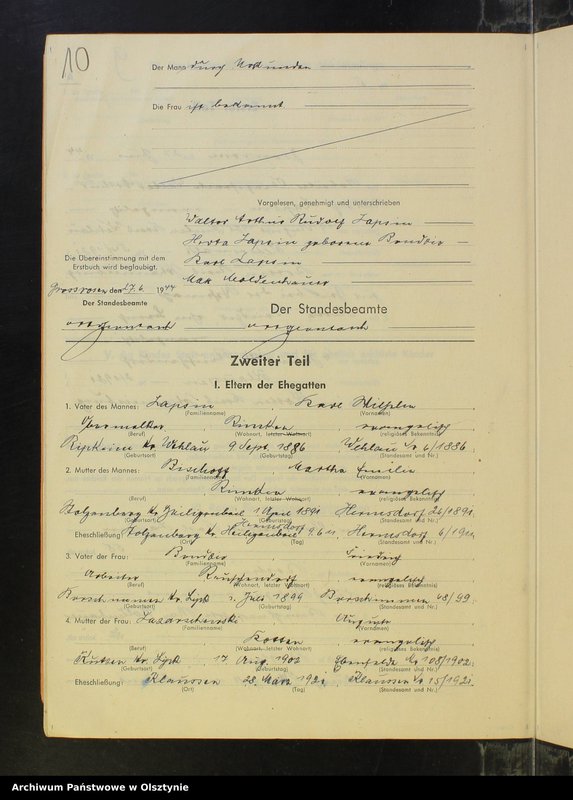 10
Der Mann durch Urkunden
Die Frau ist bekannt
Vorgelesen, genehmigt und unterschrieben
Walter Arthur Rudolf Lapsin
Herta Lapsin geborene
Karl Lapsin
Max Moldenhauer
Die Übereinstimmung mit dem
Erstbuch wird beglaubigt.
Grossrosen, den 17.6. 1944
Der Standesbeamte
Der Standesbeamte
Zweiter Teil
I. Eltern der Ehegatten
1. Vater des Mannes: Lapsin Karl Wilhelm
(Familienname) (Vornamen)
Obermelker evangelisch
(Beruf) (Wohnort, letzter Wohnort) (religiöses Bekenntnis)
Kr. Wehlau 9 Sept. 1886 Wehlau Nr 6/1886
(Geburtsort) (Geburtstag) (Standesamt und Nr.)
2. Mutter des Mannes: Bischoff Martha Emilie
(Familienname) (Vornamen)
evangelisch
(Beruf) (Wohnort, letzter Wohnort) (religiöses Bekenntnis)
Stolzenberg Kr. Heiligenbeil 1 April 1891 Hermsdorf 26/1891
(Geburtsort) (Geburtstag) (Standesamt und Nr.)
Hermsdorf
Eheschließung: Stolzenberg Kr. Heiligenbeil 9.6.11 Hermsdorf 6/1911
(Ort) (Tag) (Standesamt und Nr.)
3. Vater der Frau: Friedrich
(Familienname) (Vornamen)
Arbeiter evangelisch
(Beruf) (Wohnort, letzter Wohnort) (religiöses Bekenntnis)
Kr. Lyck Juli 1899 48/99
(Geburtsort) (Geburtstag) (Standesamt und Nr.)
4. Mutter der Frau: Auguste
(Familienname) (Vornamen)
evangelisch
(Beruf) (Wohnort, letzter Wohnort) (religiöses Bekenntnis)
Kr. Lyck 17 Aug. 1902 Ebenfelde Nr 108/1902
(Geburtsort) (Geburtstag) (Standesamt und Nr.)
Eheschließung: Klaussen 28. März 1921 Klaussen Nr 15/1921
(Ort) (Tag) (Standesamt und Nr.)
Archiwum Państwowe w Olsztynie